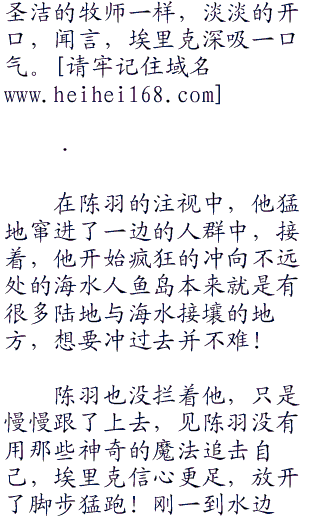 圣洁的牧师一样，淡淡的开
口，闻言，埃里克深吸一口
气。[请牢记住域名
www.heihei168.com]
.
在陈羽的注视中，他猛
地窜进了一边的人群中，接
着，他开始疯狂的冲向不远
处的海水人鱼岛本来就是有
很多陆地与海水接壤的地
方，想要冲过去并不难！
陈羽也没拦着他，只是
慢慢跟了上去，见陈羽没有
用那些神奇的魔法追击自
己，埃里克信心更足，放开
了脚步猛跑！刚一到水边